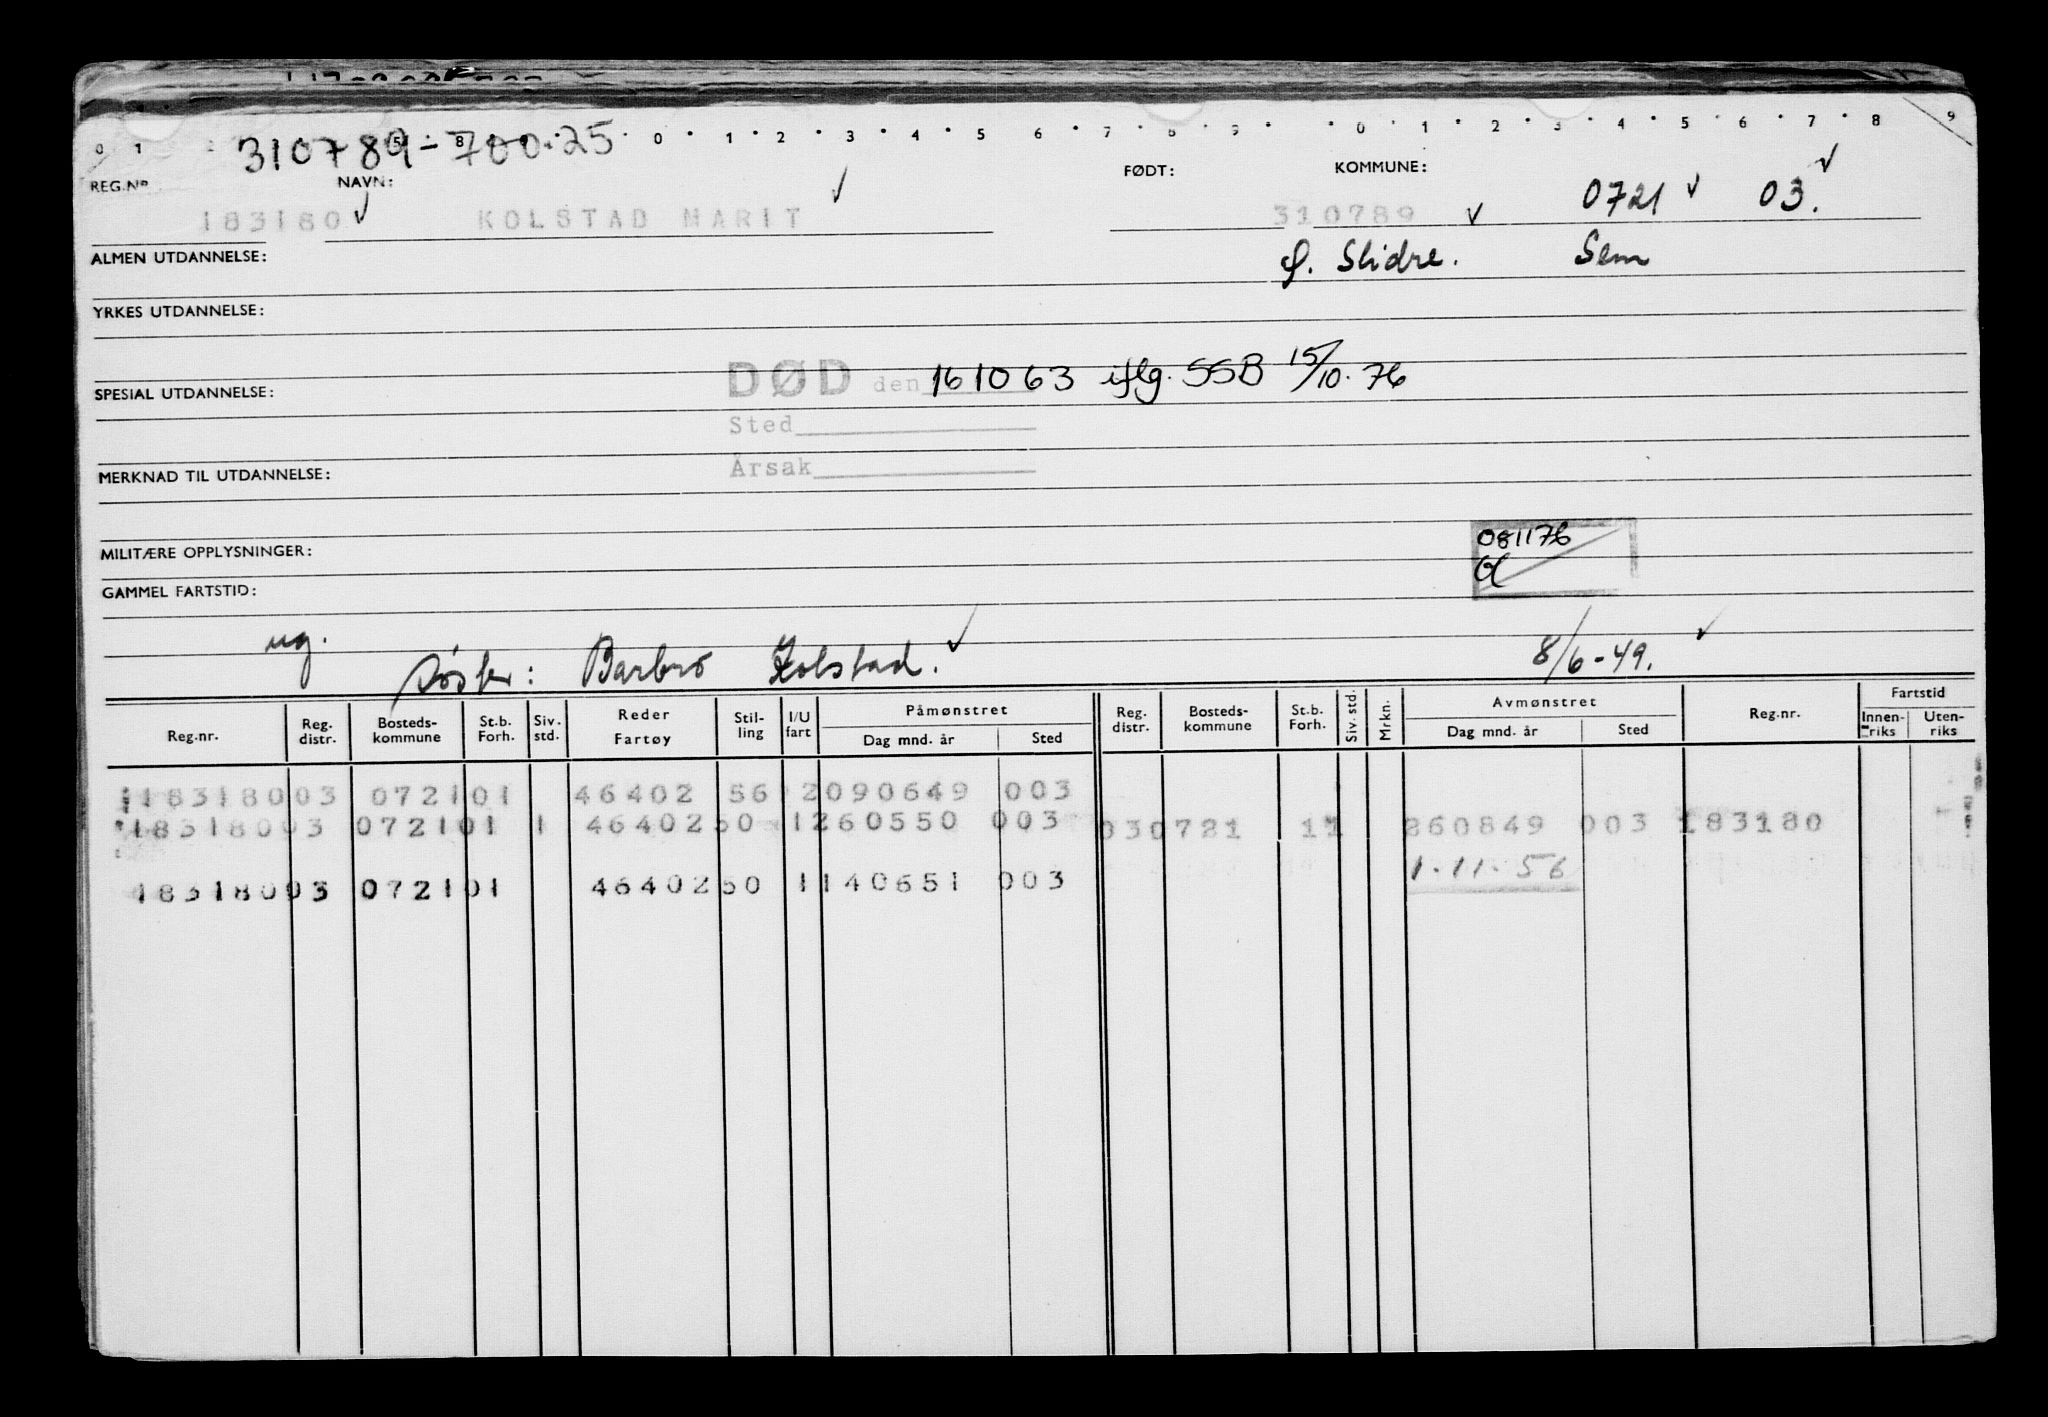 0 1 2 5 8 0 1 2 3 4 5 6 7 8 9 0 1 2 3 4 5 6 7 8 9
310789-700.25
REG.NR NAVN: FØDT: KOMMUNE:
183180 KOLSTAD MARIT 310789 0721 03.
ALMEN UTDANNELSE: Ø. Slidre. Sem
YRKES UTDANNELSE:
SPESIAL UTDANNELSE: DØD den 161063 iflg. SSB 15/10.76
Sted
MERKNAD TIL UTDANNELSE: Årsak
MILITÆRE OPPLYSNINGER: 081176
GAMMEL FARTSTID:
ug. Søster: Barbro Kolstad. 8/6-49.
Reg.nr. Reg. distr. Bosteds-kommune St.b. Forh. Siv. std. Reder Fartøy Stil-ling I/U fart Påmønstret Dag mnd. år Sted Reg. distr. Bosteds-kommune St.b. Forh. Siv. std. Mrkn. Avmønstret Dag mnd. år Sted Reg.nr. Fartstid Innen-riks Uten-riks
118318003 072101 46402 56 2090649 003
18318003 072101 1 4640250 1260550 003 030721 11 260849 003 183180
1.11.56
18318003 072101 4640250 1140651 003